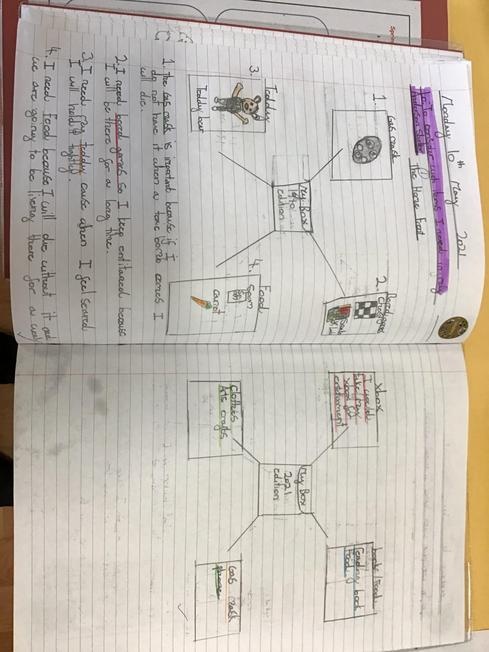 Monday 10th May 2021
The Home Front
1.
Gas mask
2.
Board
games
My Box
1940
edition
3.
Teddy
Teddy bear
4.
Food
Spam
carrot
1. The Gas mask is important because if I
do not have it when a toxic bomb comes I
will die.
2. I need board games so I keep entitained because
I will be there for a long time.
3. I need my teddy cause when I feel scared
I will hold it tightly.
4. I need food because I will die without it and
we are going to be living there for a while
Xbox
I would
take my
xbox for
entertainment
books/food
reading book
food
My Box
2021
edition
Clothes
Arts crafts
Gas mask
phone